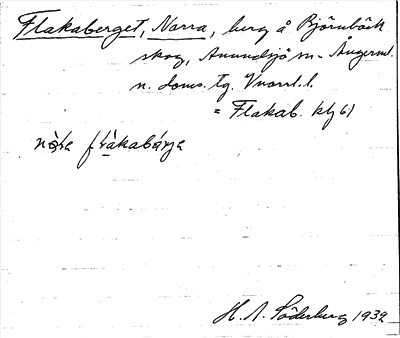 Flakaberget, Norra, berg å Björnbäck
skog, Anundsjö sn. Ångerml.
n. doms. tg. Vnorrl. l.
= Flakab. kbl 61
flakabärje
H. A. Söderberg 1932